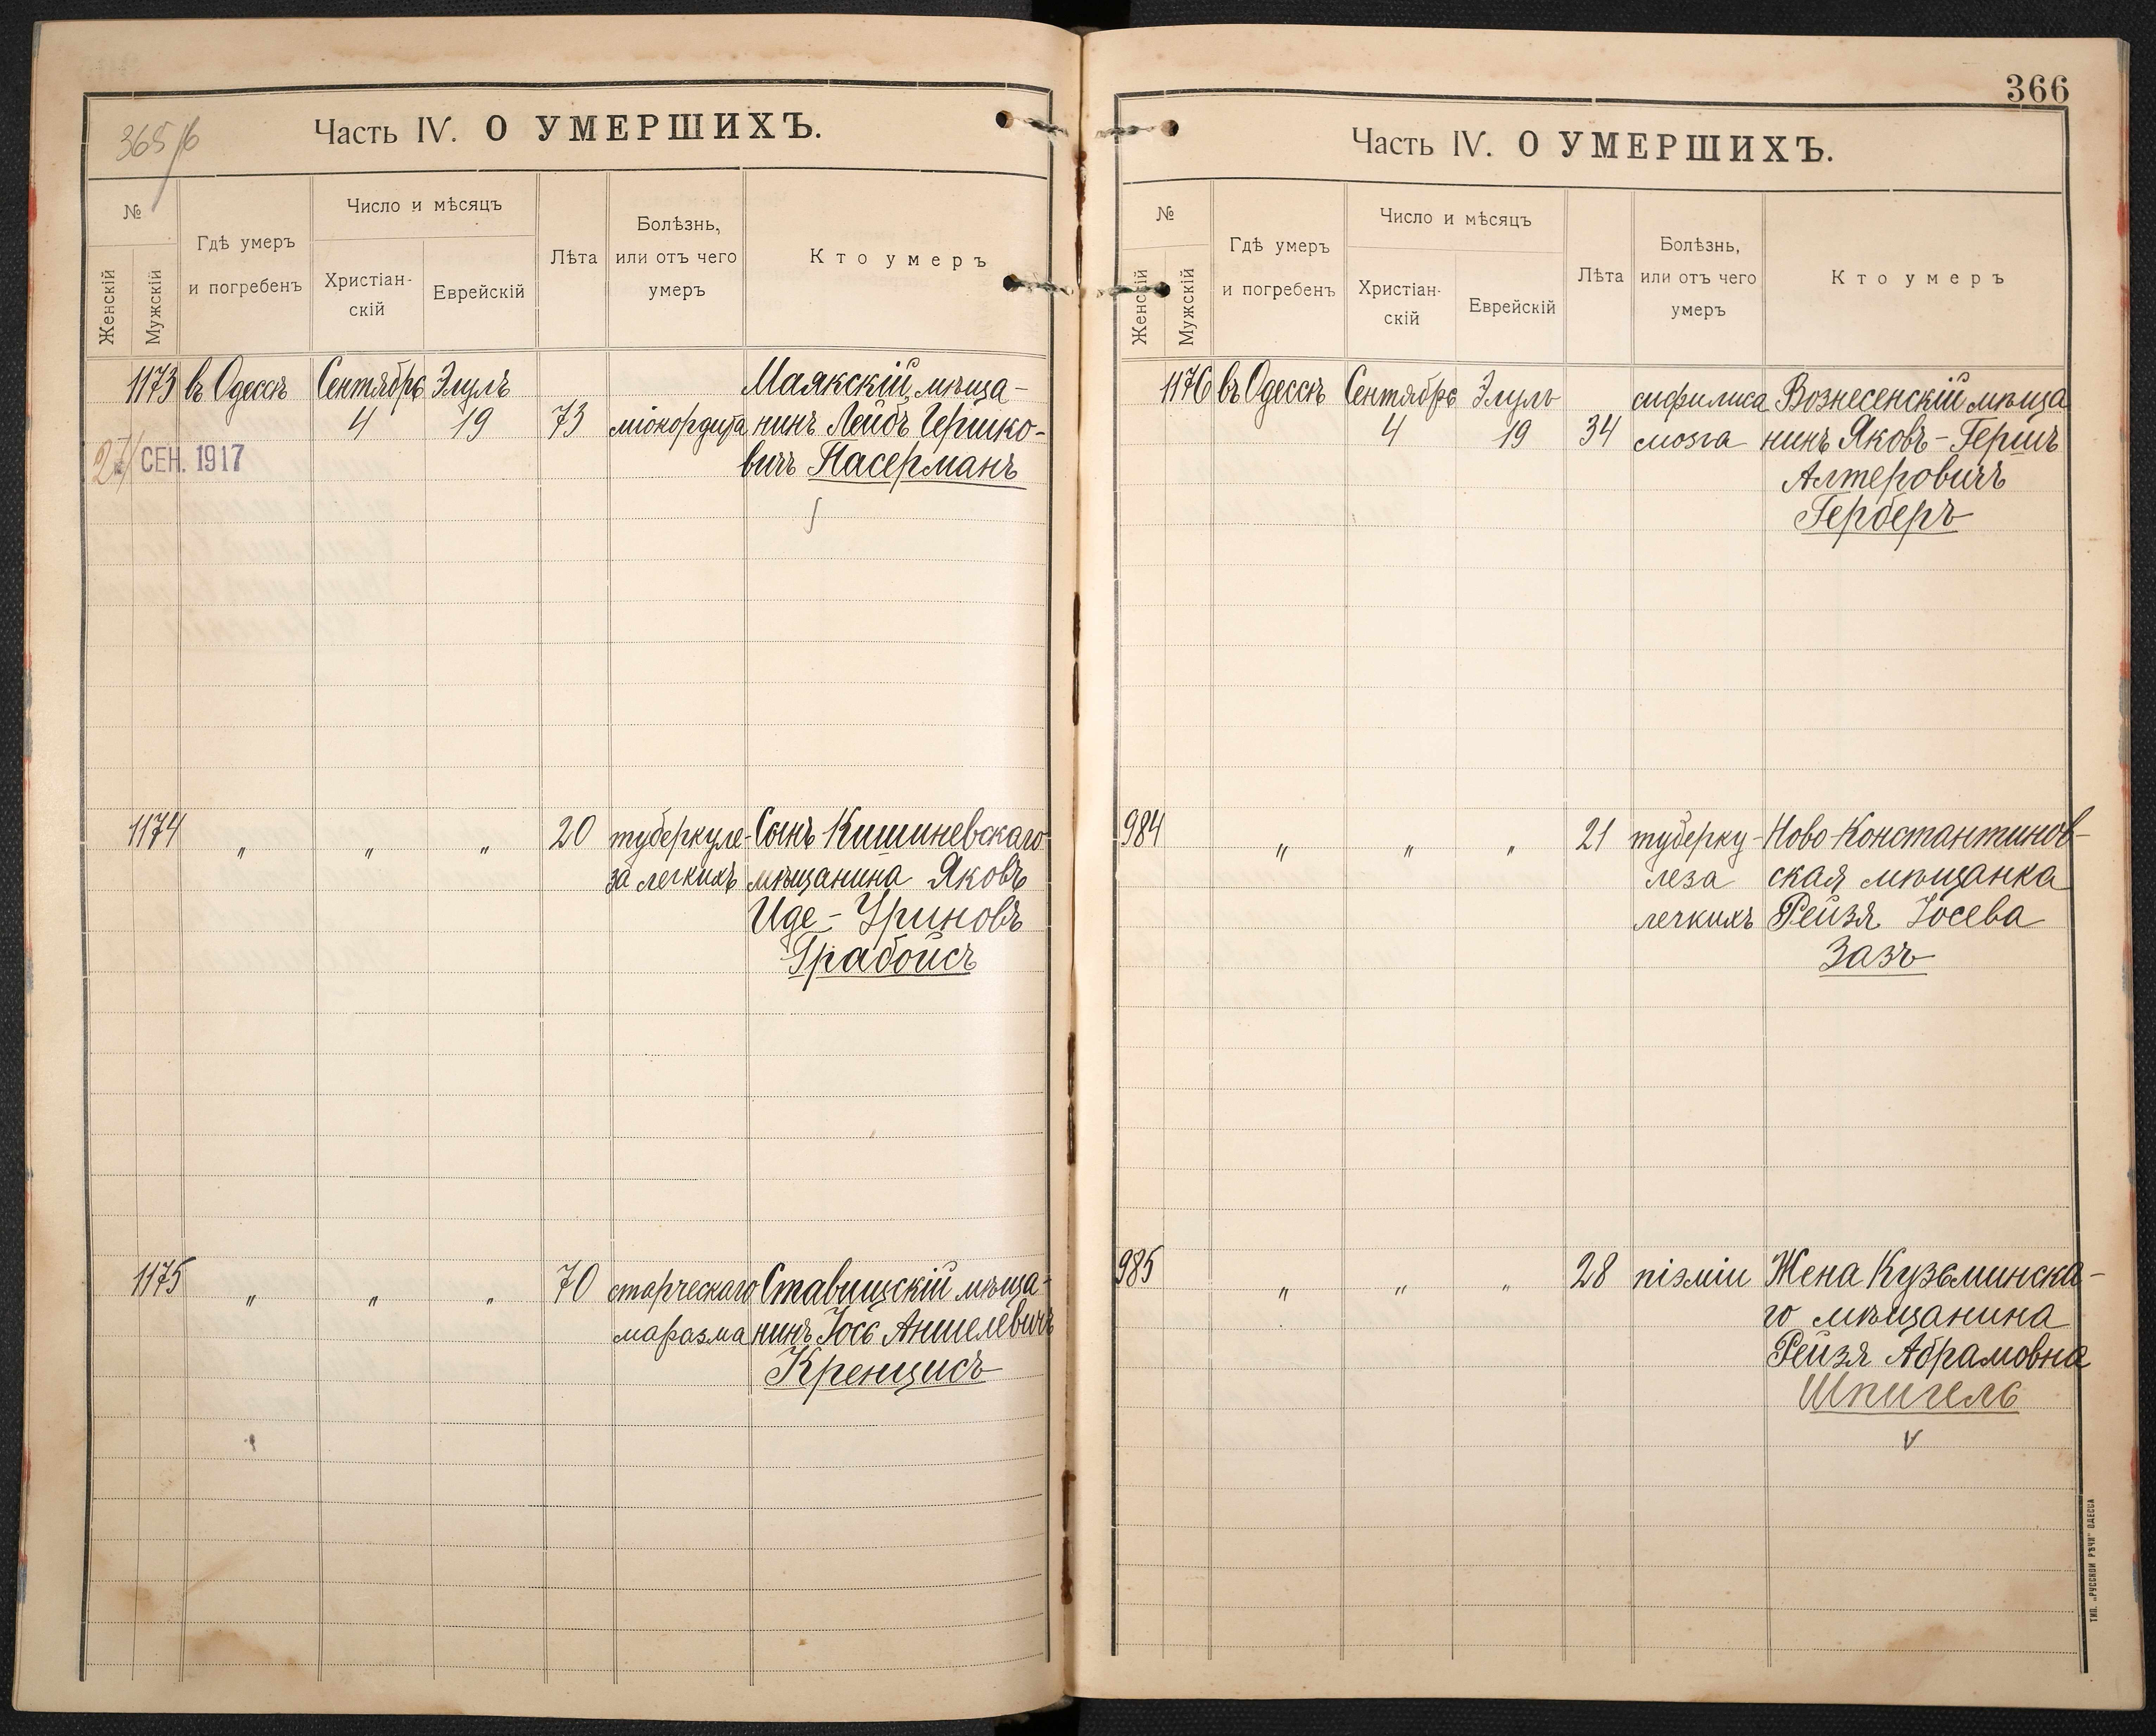 365/б
Часть IV. О УМЕРШИХЪ.
№
Женскій
Мужскій
Гдѣ умеръ
и погребенъ
Число и мѣсяцъ
Христіан-
скій
Еврейскій
Лѣта
Болѣзнь,
или отъ чего
умеръ
Кто умеръ
1173 въ Одессѣ Сентябрь Элулъ Маякскій мѣща-
4 19 73 міокордита нинъ Лейбъ Гершко-
27/ СЕН. 1917
вичъ Пасерманъ
1174 " " " 20 туберкуле- Сынъ Кишиневскаго
за легкихъ мѣщанина Яковъ
Иде-Уриновъ
Грабойсъ
1175 " " " 70 старческаго Ставищскій мѣща-
маразма нинъ Іось Аншелевичъ
Кренцисъ
366
Часть IV. О УМЕРШИХЪ.
№
Женскій
Мужскій
Гдѣ умеръ
и погребенъ
Число и мѣсяцъ
Христіан-
скій
Еврейскій
Лѣта
Болѣзнь,
или отъ чего
умеръ
Кто умеръ
1176 въ Одессѣ Сентябрь Элулъ сифилиса Вознесенскій мѣща
4 19 34 мозга нинъ Яковъ-Гершъ
Алтеровичъ
Герберъ
984 " " " 21 туберку- Ново-Константинов-
леза ская мѣщанка
легкихъ Рейзя Іосева
Зазъ
985 " " " 28 піэміи Жена Кузьминска-
го мѣщанина
Рейзя Абрамовна
Шпигель
ТИП. „РУССКОЙ РѢЧИ" ОДЕССА